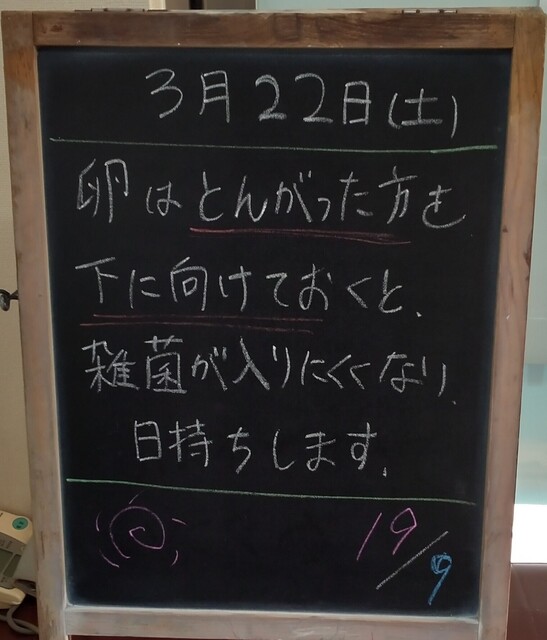 3月22日(土)
卵はとんがった方を
下に向けておくと、
雑菌が入りにくくなり、
日持ちします。
19/9